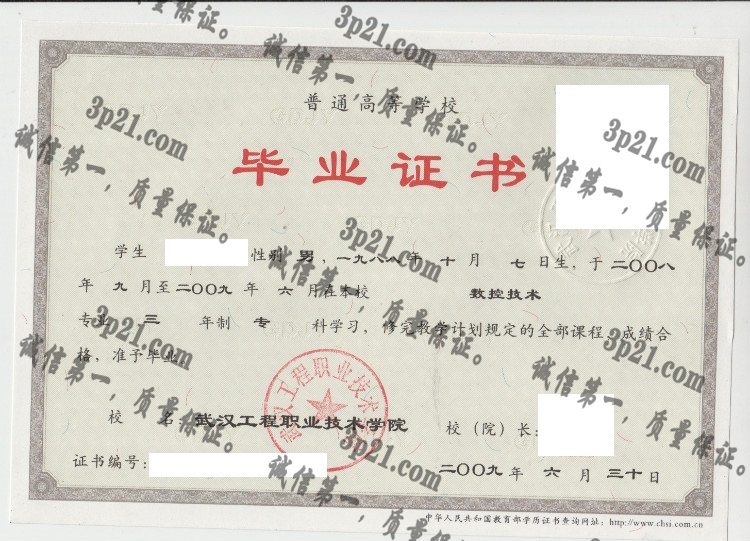 普通高等学校
毕业证书
学生 性别 男,一九八八年 十 月 七 日生,于二〇〇八
年 九 月至二〇〇九 年 六 月在本校 数控技术
专业 三 年制 专 科学习,修完教学计划规定的全部课程,成绩合
格,准予毕业
校 名:武汉工程职业技术学院 校(院)长:
证书编号: 二〇〇九年 六 月 三十日
中华人民共和国教育部学历证书查询网址:http://www.chsi.com.cn
武汉工程职业技术学院
3p21.com
诚信第一,质量保证。
3p21.com
诚信第一,质量保证。
3p21.com
诚信第一,质量保证。
3p21.com
诚信第一,质量保证。
3p21.com
诚信第一,质量保证。
3p21.com
诚信第一,质量保证。
3p21.com
诚信第一,质量保证。